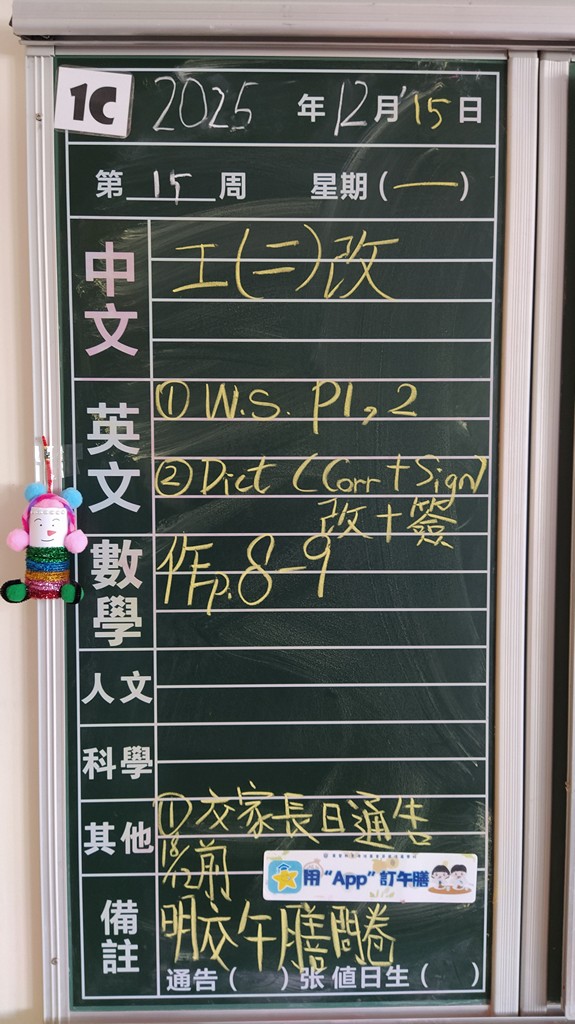 1C 2025 年 12 月 15 日
第 15 周 星期 (一)
中文 工(二)改
英文 ① W.S. P1, 2
② Dict (Corr + Sign)
改 + 簽
數學 作p. 8-9
人文
科學
其他 ① 交家長日通告
18/12前
用 “App” 訂午膳
備註 明交午膳問卷
通告 ( ) 张 值日生 ( )